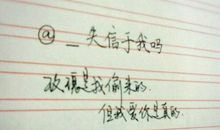 @_失信于我吗
玫瑰是我偷来的.
但我爱你是真的.